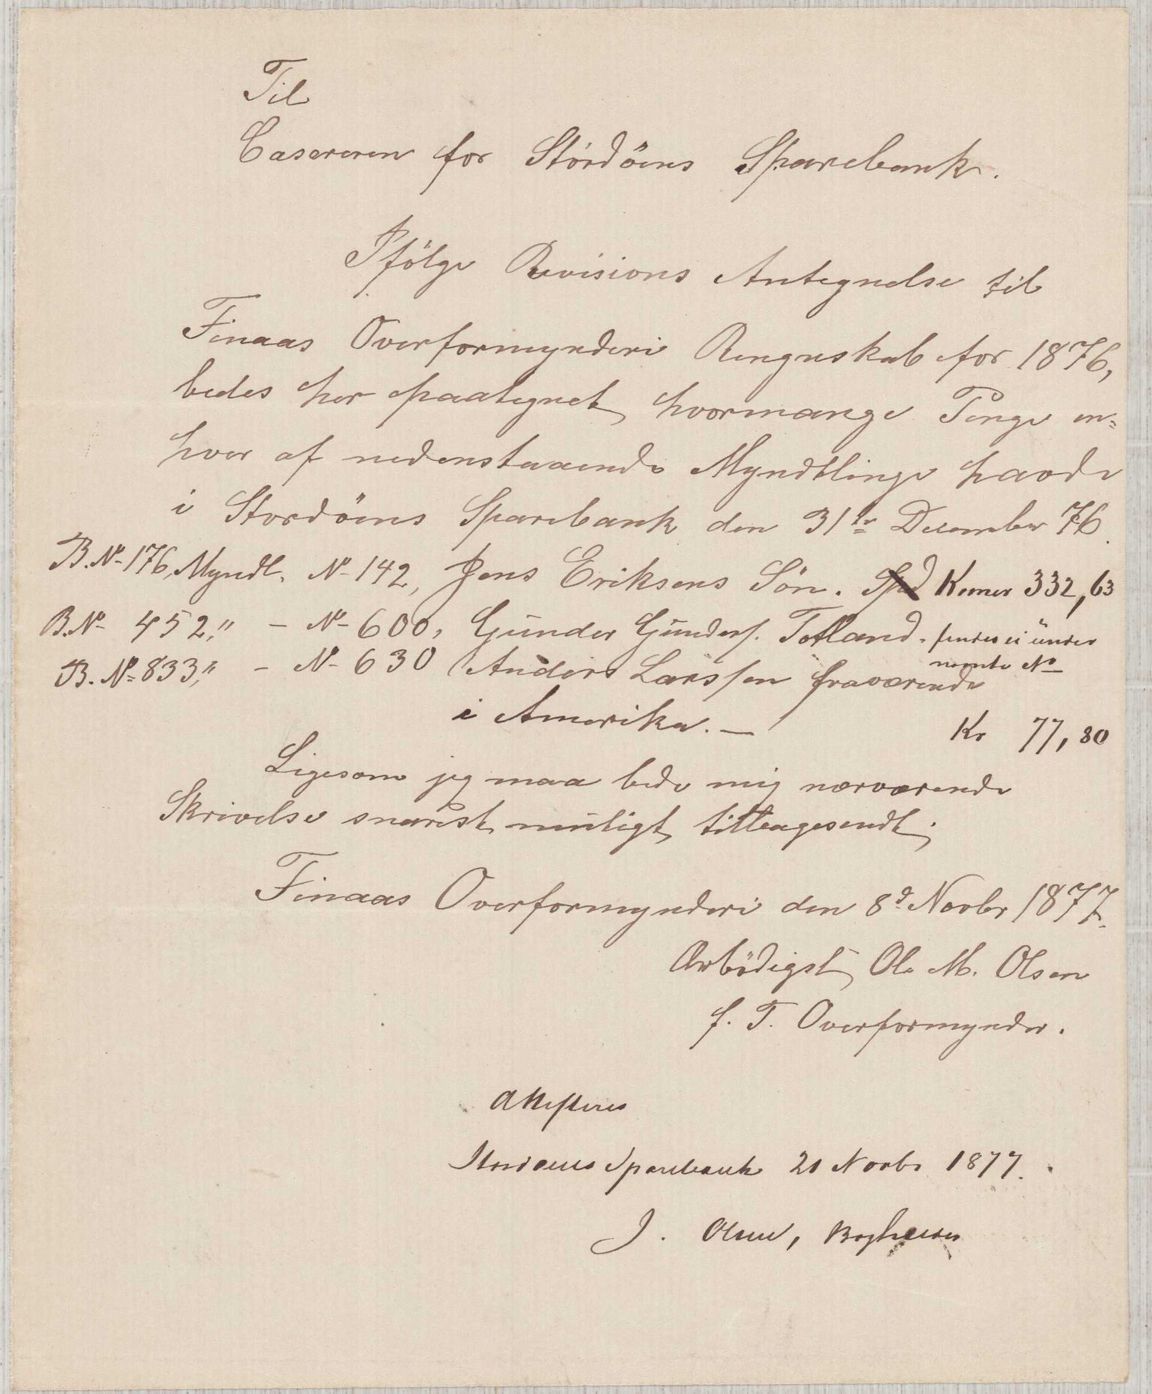 Til
Casereren for Stordöens Sparebank.
Ifölge Revisions Antegnelse til
Finaas Overformynderi Rengnskab for 1876,
bedes her paategnet, hvormange Penge en=
hver af nedenstaaende Myndtlinge havde
i Stordöens Sparebank den 31te December 76.
B.No 176, Myndl. No 142, Jens Eriksens Sön. Spd Kroner 332,63
B.No 452 „ – No 600, Gunder Gunders. Totland. findes ei under
nevnte No
B.No 833 „ – No 630 Anders Larssen fraværende
i Amerika. — Kr 77,80
Ligesom jeg maa bede mig nærværende
Skrivelse snarest muligt, tilbagesendt.
Finaas Overformynderi den 8d Novbr 1877.
Ærbödigst, Ole M. Olsen
f. T. Overformynder.
Attesteres
Stordöens Sparebank 21 Novbr 1877.
J. Olsen, Bogholder